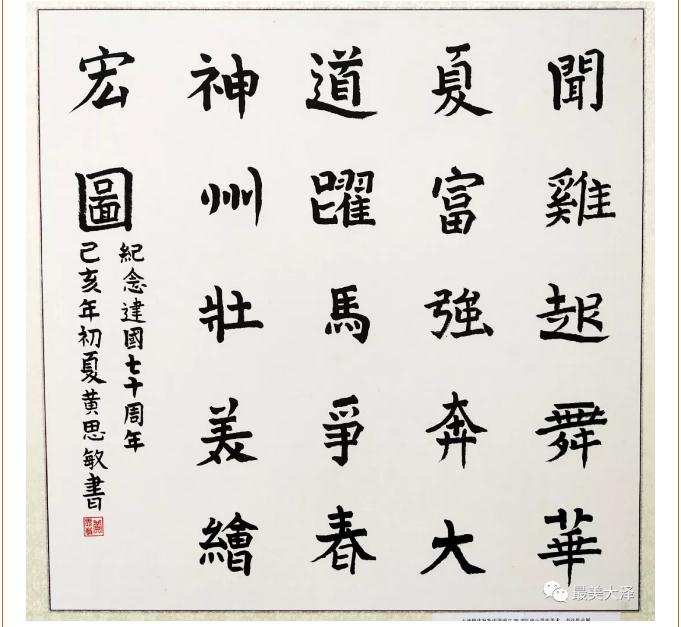 聞雞起舞華
夏富強奔大
道躍馬爭春
神州壯美繪
宏圖
紀念建國七十周年
己亥年初夏黃思敏書
最美大泽